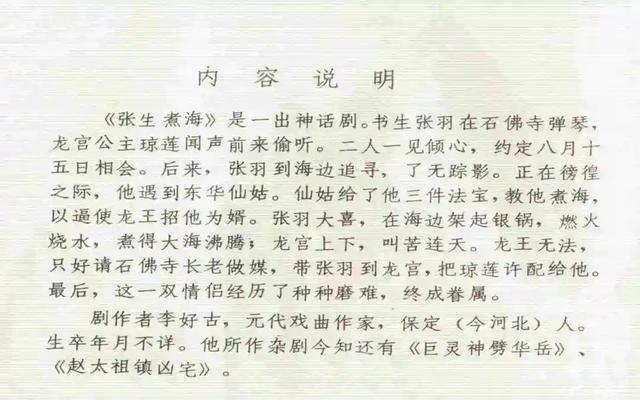 内容说明
《张生煮海》是一出神话剧。书生张羽在石佛寺弹琴，
龙宫公主琼莲闻声前来偷听。二人一见倾心，约定八月十
五日相会。后来，张羽到海边追寻，了无踪影。正在徬徨
之际，他遇到东华仙姑。仙姑给了他三件法宝，教他煮海，
以逼使龙王招他为婿。张羽大喜，在海边架起银锅，燃火
烧水，煮得大海沸腾；龙宫上下，叫苦连天。龙王无法，
只好请石佛寺长老做媒，带张羽到龙宫，把琼莲许配给他。
最后，这一双情侣经历了种种磨难，终成眷属。
剧作者李好古，元代戏曲作家，保定（今河北）人。
生卒年月不详。他所作杂剧今知还有《巨灵神劈华岳》、
《赵太祖镇凶宅》。